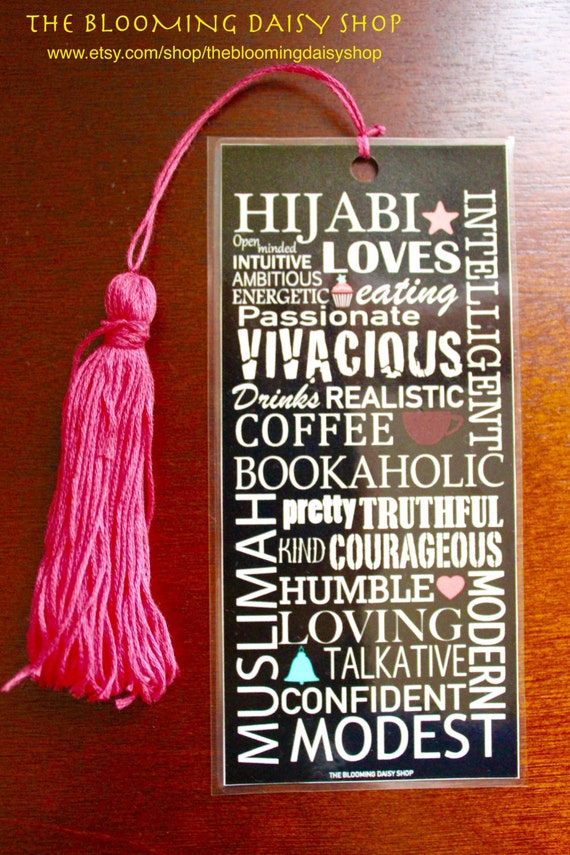 THE BLOOMING DAISY SHOP
www.etsy.com/shop/thebloomingdaisyshop
HIJABI
INTELLIGENT
Open minded
LOVES
INTUITIVE
AMBITIOUS
ENERGETIC
eating
Passionate
VIVACIOUS
Drinks REALISTIC
COFFEE
BOOKAHOLIC
MUSLIMAH
pretty TRUTHFUL
KIND COURAGEOUS
HUMBLE
MODERN
LOVING
TALKATIVE
CONFIDENT
MODEST
THE BLOOMING DAISY SHOP